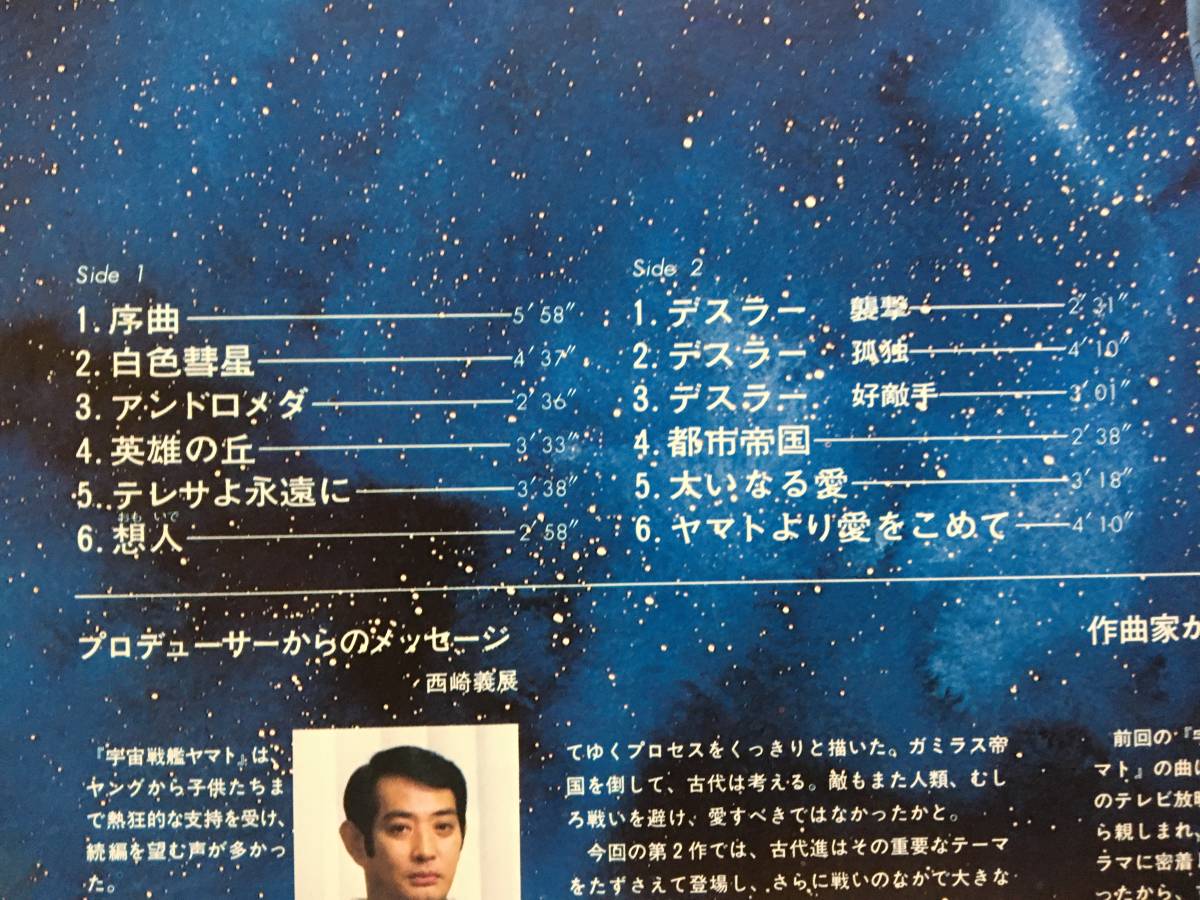 Side 1
1. 序曲 5′58″
2. 白色彗星 4′37″
3. アンドロメダ 2′36″
4. 英雄の丘 3′33″
5. テレサよ永遠に 3′38″
おもいで
6. 想人 2′58″
Side 2
1. デスラー 襲撃 2′31″
2. デスラー 孤独 4′10″
3. デスラー 好敵手 3′01″
4. 都市帝国 2′38″
5. 大いなる愛 3′18″
6. ヤマトより愛をこめて 4′10″
プロデューサーからのメッセージ
西崎義展
『宇宙戦艦ヤマト』は、
ヤングから子供たちま
で熱狂的な支持を受け、
続編を望む声が多かっ
た。
てゆくプロセスをくっきりと描いた。ガミラス帝
国を倒して、古代は考える。敵もまた人類、むし
ろ戦いを避け、愛すべきではなかったかと。
今回の第2作では、古代進はその重要なテーマ
をたずさえて登場し、さらに戦いのなかで大きな
作曲家か
前回の『宇
マト』の曲は
のテレビ放映
ら親しまれ、
ラマに密着
ったから、